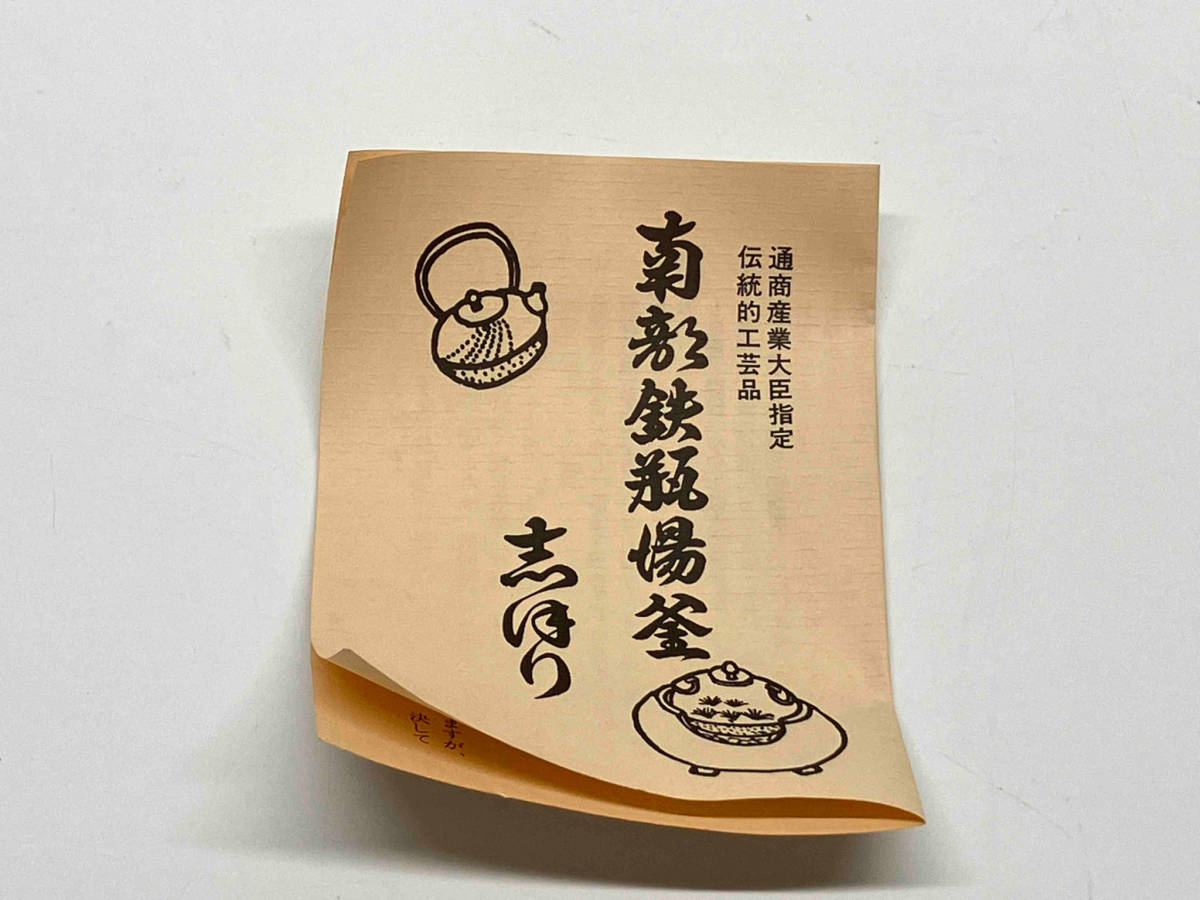 通商産業大臣指定
伝統的工芸品
南部鉄瓶湯釜
志ほり
ますが、
決して